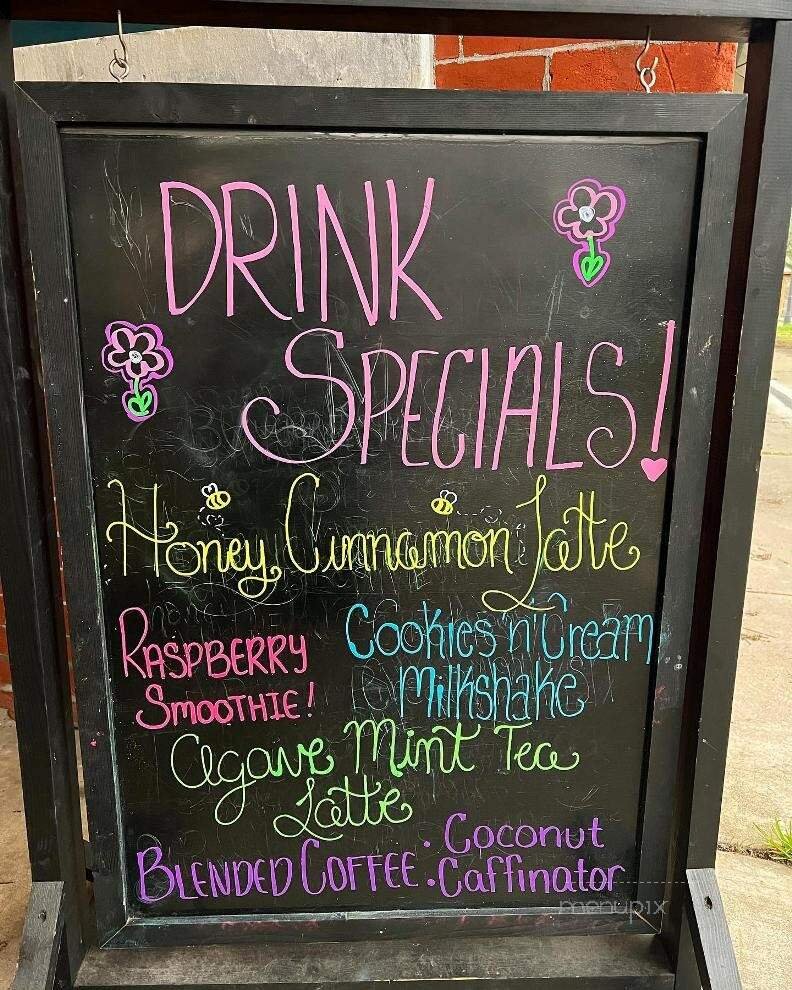 DRINK
SPECIALS!
Honey Cinnamon Latte
RASPBERRY
SMOOTHIE!
Cookies 'n' Cream
Milkshake
Agave Mint Tea
Latte
BLENDED COFFEE
• Coconut
• Caffinator
menupix